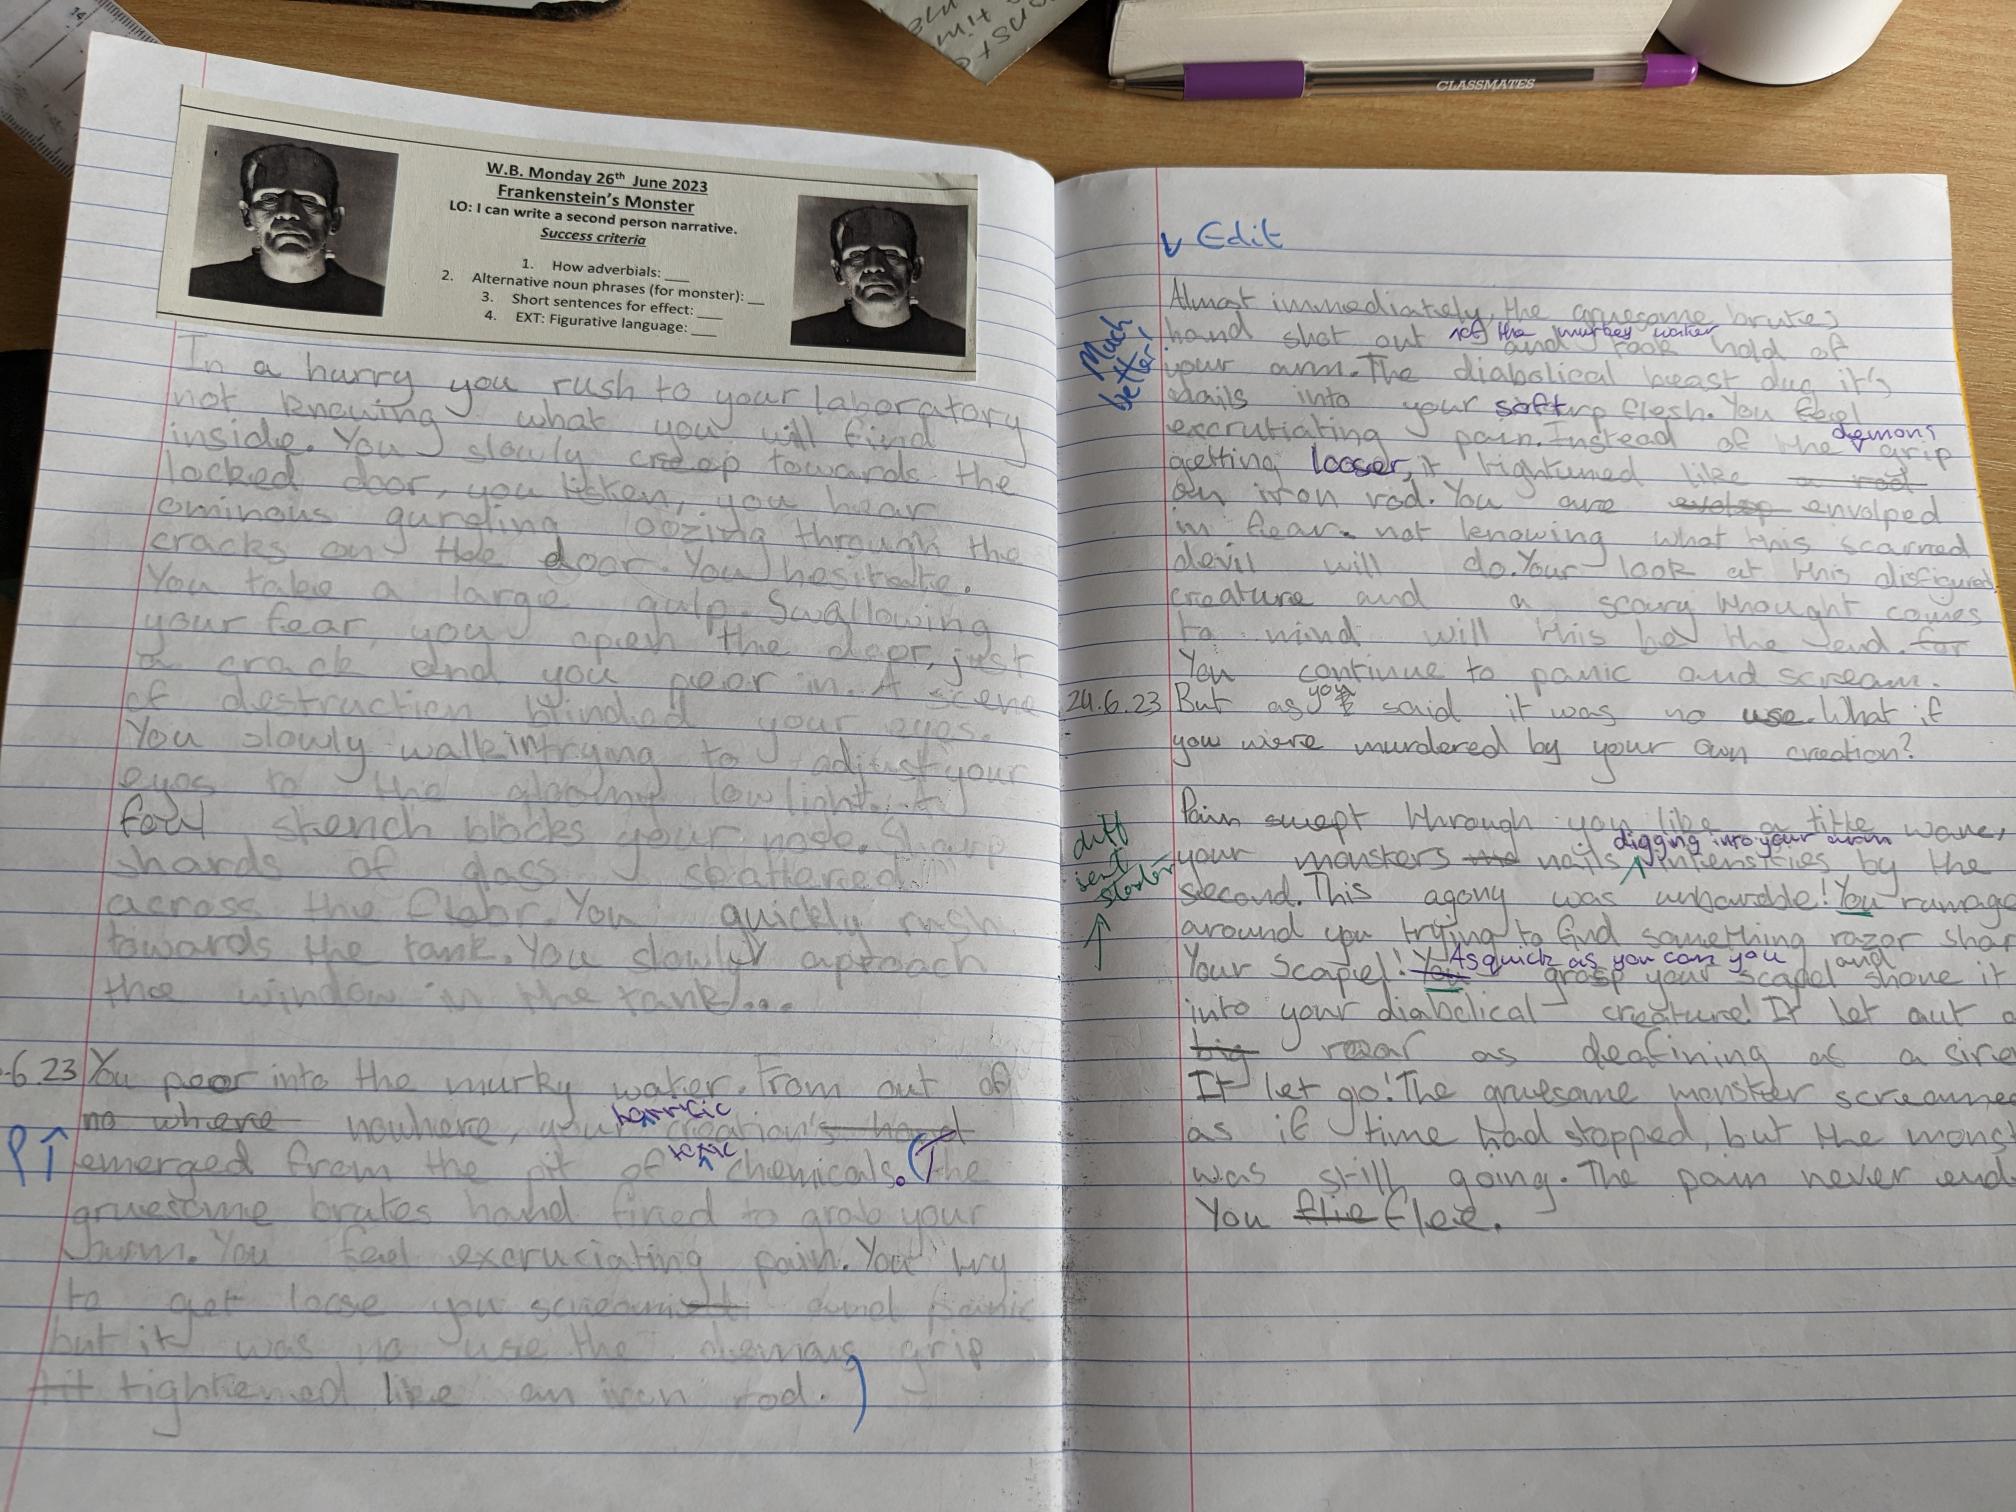 CLASSMATES
W.B. Monday 26th June 2023
Frankenstein's Monster
LO: I can write a second person narrative.
Success criteria
1. How adverbials: ___
2. Alternative noun phrases (for monster): __
3. Short sentences for effect: ___
4. EXT: Figurative language: ___
In a hurry you rush to your laboratory
not knowing what you will find
inside. You slowly creep towards the
locked door, you listen, you hear
ominous gurgling oozing through the
cracks on the door. You hesitate.
You take a large gulp. Swallowing
your fear, you open the door, just
a crack and you peer in. A scene
of destruction blinded your eyes.
You slowly walk in trying to adjust your
eyes to the gloomy low light. A
foul stench blocks your nose. Sharp
shards of glass shattered
across the floor. You quickly rush
towards the tank. You slowly approach
the window in the tank...
.6.23 You peer into the murky water. From out of
no where nowhere, your horrific creation's hand
P↑ emerged from the pit of toxic chemicals. (The
gruesome brutes hand fired to grab your
arm. You feel excruciating pain. You try
to get loose you scream and panic
but it was no use the demons grip
tit tightened like an iron rod.)
↓ Edit
Much
better!
Almost immediately, the gruesome brutes
hand shot out of the murkey water and took hold of
your arm. The diabolical beast dug it's
nails into your soft flesh. You feel
excrutiating pain. Instead of the demons grip
getting looser, it tightuned like a rod
an iron rod. You are envolped
in fear not knowing what this scarred
devil will do. Your look at this disfigured
creature and a scary thought comes
to mind will this be the end. for
You continue to panic and scream.
24.6.23 But as you said it was no use. What if
you were murdered by your own creation?
diff
sent
starter
↑
Pain swept through you like a wave,
your monsters nails digging into your arm intensties by the
second. This agony was unbarible! You rumage
around you trying to find something razor shar
Your Scapel! You As quick as you can you grasp your scapel and shove it
into your diabolical creature! It let out a
big roar as deafining as a sire
It let go! The gruesome monster screamed
as if time had stopped, but the monst
was still going. The pain never end
You flie flee.